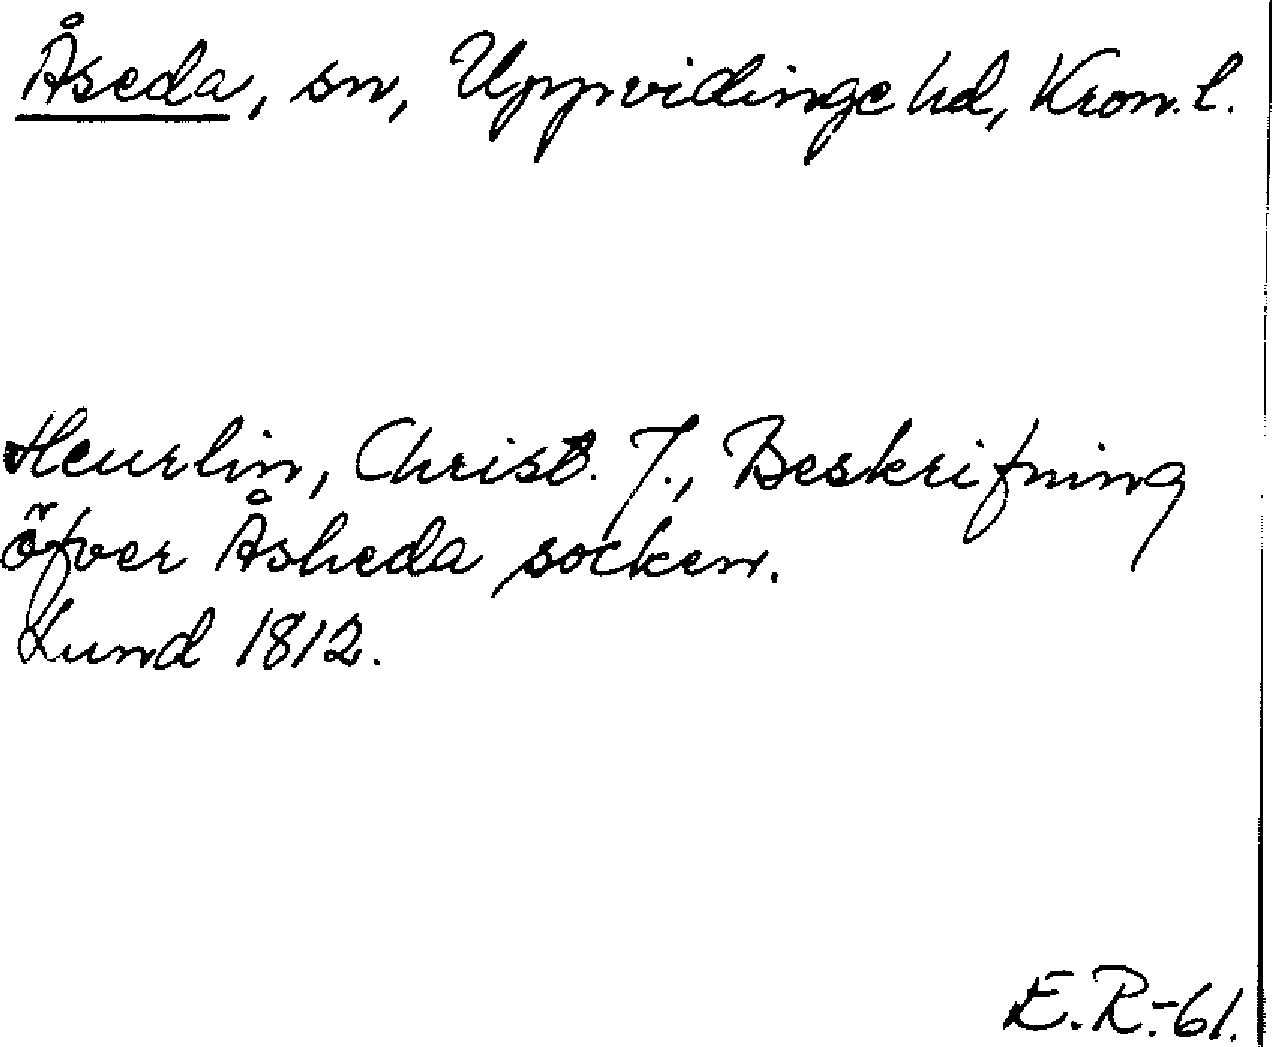 Åseda, sn, Uppvidinge hd, Kron. l.
Heurlin, Christ. J., Beskrifning
öfver Åsheda socken.
Lund 1812.
E. R. -61.